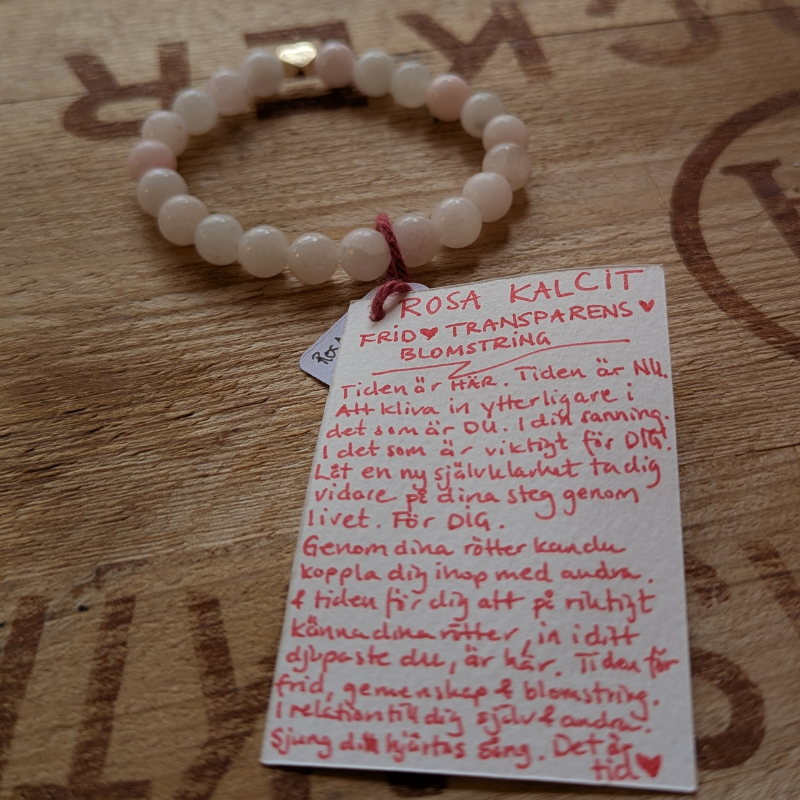 ROSA KALCIT
FRID ♥ TRANSPARENS ♥
BLOMSTRING
Tiden är HÄR. Tiden är NU.
Att kliva in ytterligare i
det som är DU. I din sanning.
I det som är viktigt för DIG.
Låt en ny självklarhet ta dig
vidare på dina steg genom
livet. För DIG.
Genom dina rötter kan du
koppla dig ihop med andra.
& tiden för dig att på riktigt
känna dina rötter, in i ditt
djupaste du, är här. Tiden för
frid, gemenskap & blomstring.
I relation till dig själv & andra.
Sjung ditt hjärtas sång. Det är
tid ♥